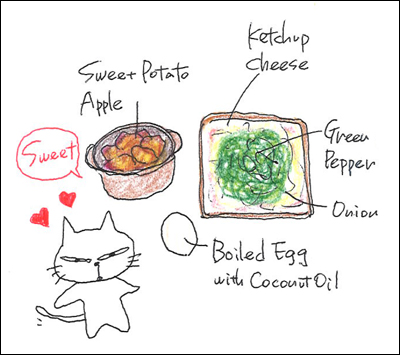 Ketchup
cheese
Sweet Potato
Apple
Green
Pepper
Sweet
Onion
Boiled Egg
with Coconut Oil